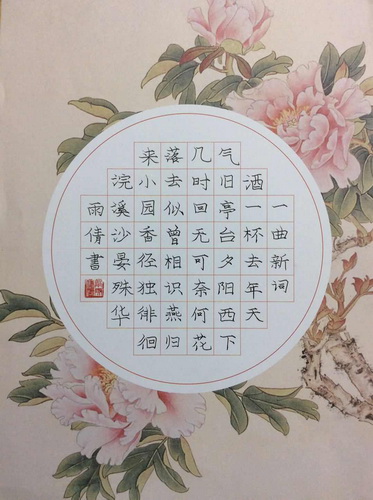 一曲新词
酒一杯去年天
气旧亭台夕阳西下
几时回无可奈何花
落去似曾相识燕归
来小园香径独徘徊
浣溪沙晏殊华
雨倩書